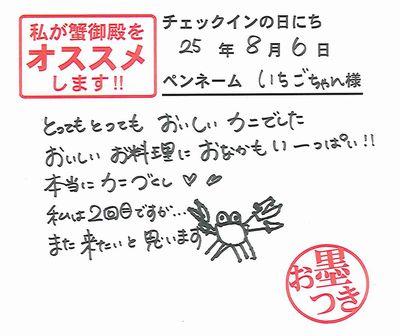 私が蟹御殿を
オススメ
します!!
チェックインの日にち
25 年 8 月 6 日
ペンネーム いちごちゃん様
とってもとっても おいしい カニでした
おいしい お料理に おなかもい一っぱい!!
本当に カニづくし ♥ ♥
私は2回目ですが…
また 来たいと 思います
お墨つき